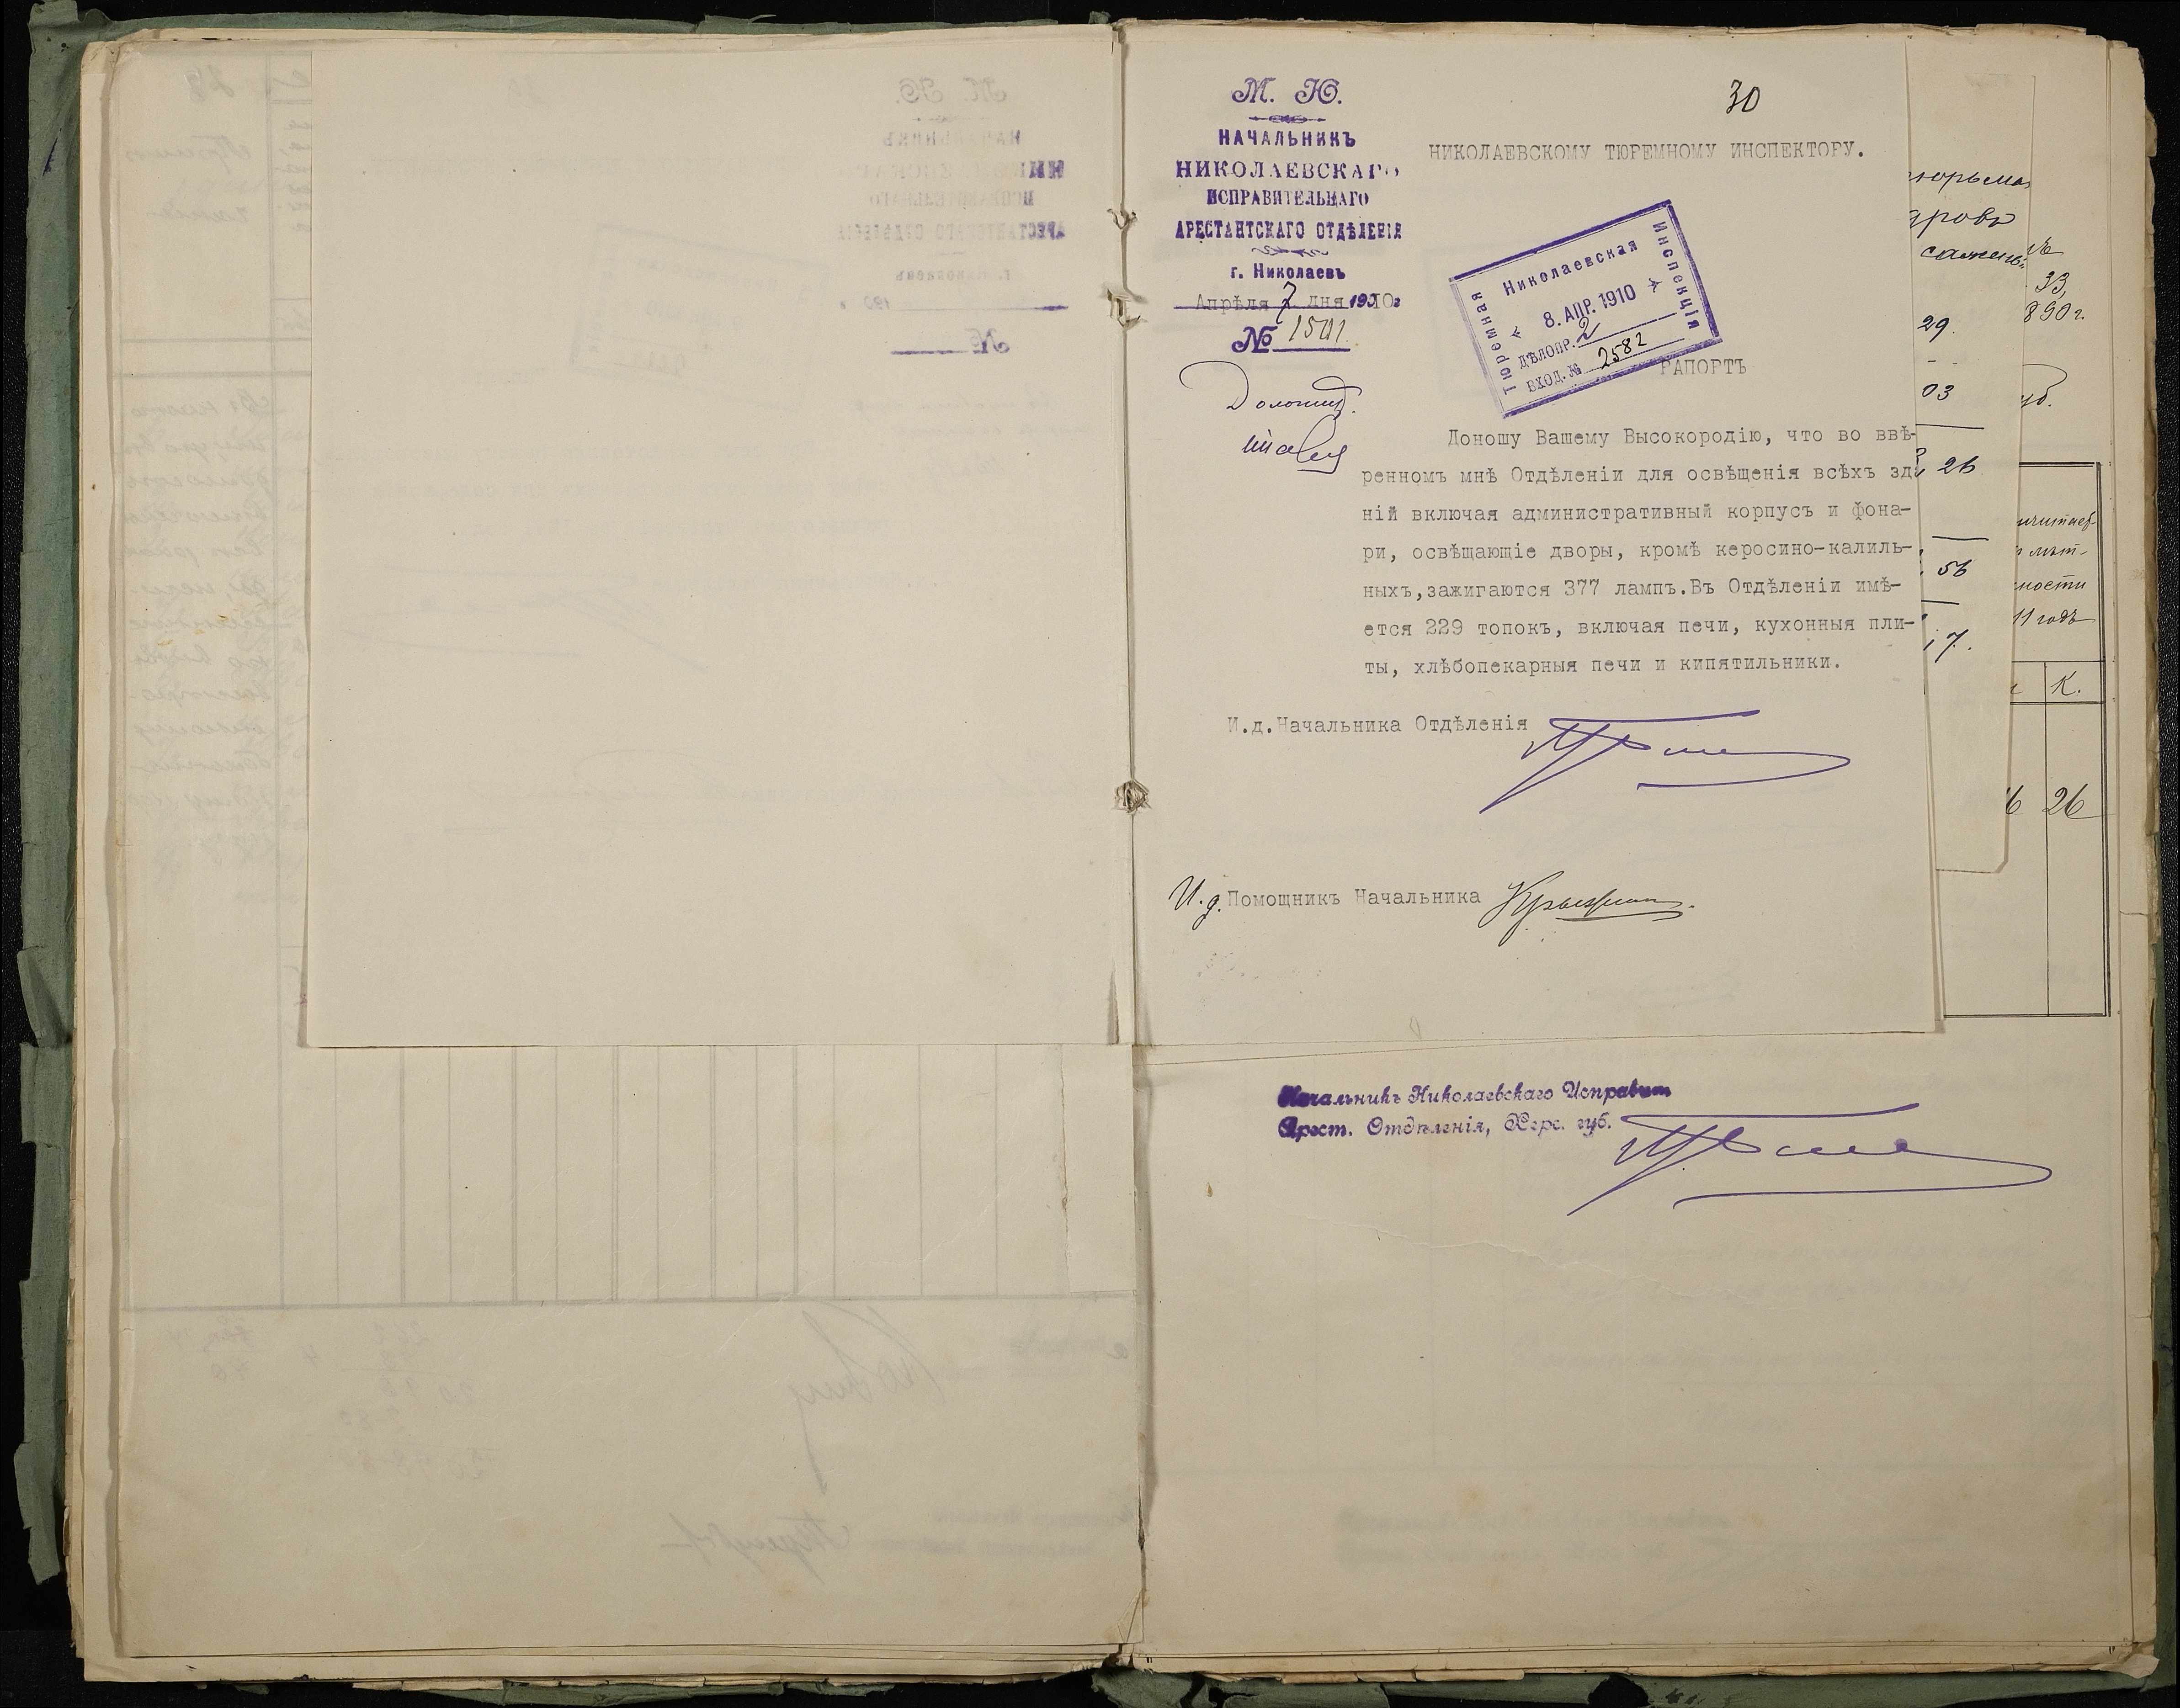 30
М. Ю.
НАЧАЛЬНИКЪ
НИКОЛАЕВСКАГО
ИСПРАВИТЕЛЬНАГО
АРЕСТАНТСКАГО ОТДѢЛЕНІЯ
г. Николаевъ
Апрѣля 7 дня 1910г
№
НИКОЛАЕВСКОМУ ТЮРЕМНОМУ ИНСПЕКТОРУ.
Николаевская
Тюремная
Инспекція
8. АПР. 1910
ДѢЛОПР. 2
ВХОД. № 2582
РАПОРТЪ
Доношу Вашему Высокородію, что во ввѣ-
ренномъ мнѣ Отдѣленіи для освѣщенія всѣхъ зда
ній включая административный корпусъ и фона-
ри, освѣщающіе дворы, кромѣ керосино-калиль-
ныхъ,зажигаются 377 лампъ.Въ Отдѣленіи имѣ-
ется 229 топокъ, включая печи, кухонныя пли-
ты, хлѣбопекарныя печи и кипятильники.
И.д.Начальника Отдѣленія
И.д. Помощникъ Начальника
Начальникъ Николаевскаго Исправит
Арест. Отдѣленія, Херс. губ.
сажень
33,
890 г.
29.
03
26
56
17.
11 годъ
К.
26